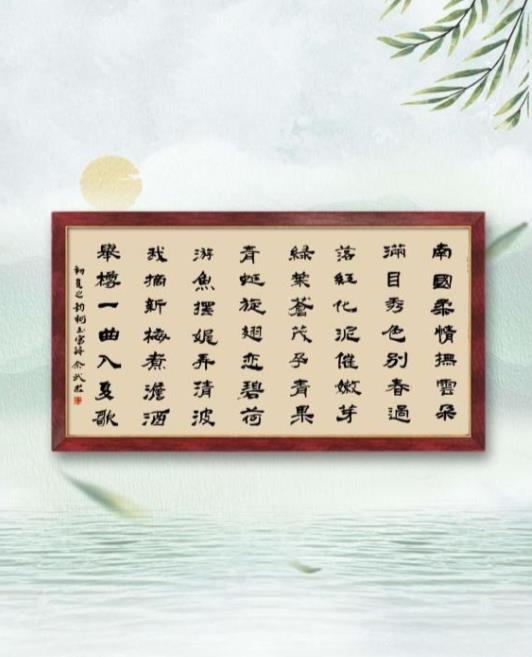 南國柔情撫雲朵
滿目秀色別春過
落紅化泥催嫩芽
綠葉蒼茂孕青果
青蜓旋翅恋碧荷
游魚擺娓弄清波
我摘新梅煮澹酒
舉樽一曲入夏歌
初夏之韵